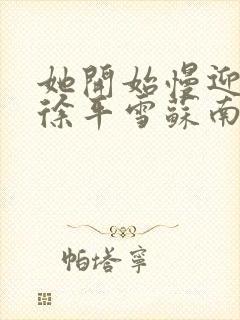 她開始慢迎
徐平雪蘇南
帕塔寧